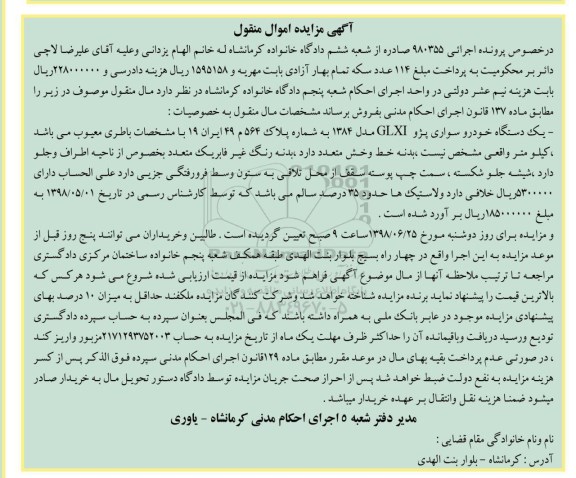 آگهی مزایده اموال منقول
درخصوص پرونده اجرائی ۹۸۰۳۵۵ صادره از شعبه ششم دادگاه خانواده کرمانشاه له خانم الهام یزدانی وعلیه آقای علیرضا لاچی
دائر بر محکومیت به پرداخت مبلغ ۱۱۴ عدد سکه تمام بهار آزادی بابت مهریه و ۱۵۹۵۱۵۸ ریال هزینه دادرسی و ۲۲۸۰۰۰۰۰۰ریال
بابت هزینه نیم عشر دولتی در واحد اجرای احکام شعبه پنجم دادگاه خانواده کرمانشاه در نظر دارد مال منقول موصوف در زیر را
مطابق ماده ۱۳۷ قانون اجرای احکام مدنی بفروش برساند مشخصات مال منقول به خصوصیات :
- یک دستگاه خودرو سواری پژو GLXI مدل ۱۳۸۴ به شماره پلاک ۵۶۴م ۴۹ ایران ۱۹ با مشخصات باطری معیوب می باشد
،کیلو متر واقعی مشخص نیست ،بدنه خط وخش متعدد دارد ،بدنه رنگ غیر فابریک متعدد بخصوص از ناحیه اطراف وجلو
دارد ،شیشه جلو شکسته ، سمت چپ پوسته سقف از محل تلاقی به ستون وسط فرورفتگی جزیی دارد علی الحساب دارای
۵۳۰۰۰۰۰ریال خلافی دارد ولاستیک ها حدود ۳۵ درصد سالم می باشد که توسط کارشناس رسمی در تاریخ ۱۳۹۸/۰۵/۰۱ به
مبلغ ۱۸۵۰۰۰۰۰۰ریال بر آورد شده است .
و مزایده برای روز دوشنبه مورخ ۱۳۹۸/۰۶/۲۵ساعت ۹ صبح تعیین گردیده است . طالبین وخریداران می توانند پنج روز قبل از
موعد مزایده به این اجرا واقع در چهار راه بسیج بلوار بنت الهدی طبقه همکف شعبه پنجم خانواده ساختمان مرکزی دادگستری
مراجعه تا ترتیب ملاحظه آنها از مال موضوع آگهی فراهم شود مزایده از قیمت ارزیابی شده شروع می شود هرکس که
بالاترین قیمت را پیشنهاد نماید برنده مزایده شناخته خواهد شد وشرکت کنندگان مزایده ملکفند حداقل به میزان ۱۰ درصد بهای
پیشنهادی مزایده موجود در عابر بانک ملی به همراه داشته باشند که فی المجلس بعنوان سپرده به حساب سپرده دادگستری
تودیع ورسید دریافت وباقیمانده آن را حداکثر ظرف مهلت یک ماه از تاریخ مزایده به حساب ۲۱۷۱۲۹۳۷۵۲۰۰۳مزبور واریز کند
، در صورتی عدم پرداخت بقیه بهای مال در موعد مقرر مطابق ماده ۱۲۹قانون اجرای احکام مدنی سپرده فوق الذکر پس از کسر
هزینه مزایده به نفع دولت ضبط خواهد شد پس از احراز صحت جریان مزایده توسط دادگاه دستور تحویل مال به خریدار صادر
میشود ضمنا هزینه نقل وانتقال بر عهده خریدار میباشد .
مدیر دفتر شعبه ۵ اجرای احکام مدنی کرمانشاه - یاوری
نام ونام خانوادگی مقام قضایی :
آدرس : کرمانشاه - بلوار بنت الهدی